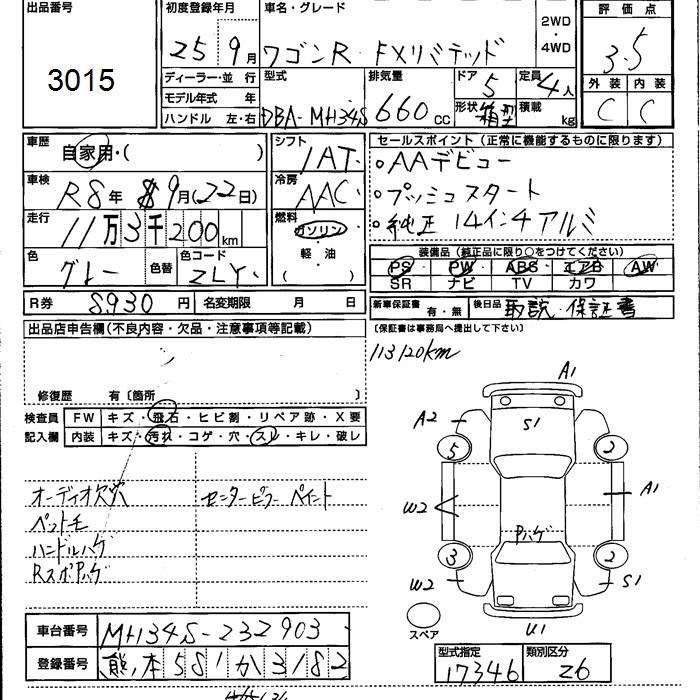 出品番号 3015
初度登録年月 25年9月
車名・グレード ワゴンR FXリミテッド 2WD・4WD
評価点 3.5
外装 C 内装 C
ディーラー・並行
モデル年式 年
ハンドル 左・右
型式 DBA-MH34S
排気量 660cc
ドア 5 形状 箱型
定員 4人 積載 kg
車歴 自家用・( )
シフト IAT
セールスポイント(正常に機能するものに限ります)
・AAデビュー
・プッシュスタート
・純正14インチアルミ
車検 R8年9月(22日)
冷房 AAC
走行 11万3千200km
燃料 ガソリン 軽油 ( )
色 グレー 色替 色コード ZLY
装備品(純正品に限り○をつけてください)
PS PW ABS エアB AW
SR ナビ TV カワ
R券 8930円 名変期限 月 日
新車保証書 有・無 後日品 取説・保証書
(保証書は事務局へ提出して下さい)
出品店申告欄(不良内容・欠品・注意事項等記載)
113120km
修復歴 有〔箇所 〕
検査員記入欄 FW キズ・飛石・ヒビ割・リペア跡・X要
内装 キズ・汚れ・コゲ・穴・スレ・キレ・破レ
オーディオ欠穴 センターピラーペイント
ペット毛
ハンドルハゲ
RスポPハゲ
A1
A2 S1
5 2
W2 A1
Pハゲ
3 2
W2 S1
スペア U1
車台番号 MH34S-232903
登録番号 熊本581か3182
型式指定 17346 類別区分 26